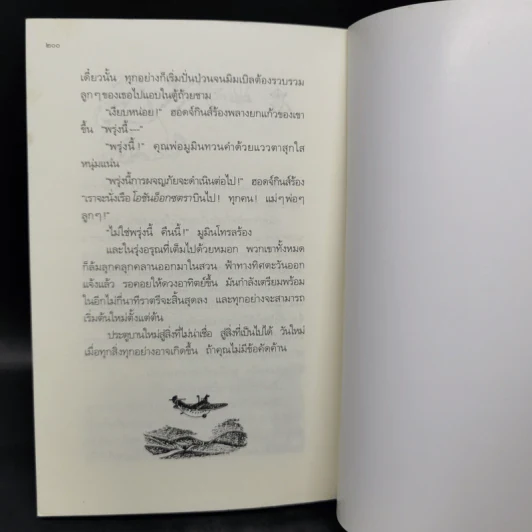 ๒๐๐
เดี๋ยวนั้น ทุกอย่างก็เริ่มปั่นป่วนจนมิมเบิลต้องรวบรวม
ลูกๆของเธอไปแอบในตู้ถ้วยชาม
"เงียบหน่อย!" ฮอดจ์กินส์ร้องพลางยกแก้วของเขา
ขึ้น "พรุ่งนี้—"
"พรุ่งนี้!" คุณพ่อมูมินทวนคำด้วยแววตาสุกใส
หนุ่มแน่น
"พรุ่งนี้การผจญภัยจะดำเนินต่อไป!" ฮอดจ์กินส์ร้อง
"เราจะนั่งเรือโอชันอ็อกซตราบินไป! ทุกคน! แม่ๆพ่อๆ
ลูกๆ!"
"ไม่ใช่พรุ่งนี้ คืนนี้!" มูมินโทรลร้อง
และในรุ่งอรุณที่เต็มไปด้วยหมอก พวกเขาทั้งหมด
ก็ล้มลุกคลุกคลานออกมาในสวน ฟ้าทางทิศตะวันออก
แจ้งแล้ว รอคอยให้ดวงอาทิตย์ขึ้น มันกำลังเตรียมพร้อม
ในอีกไม่กี่นาทีราตรีจะสิ้นสุดลง และทุกอย่างจะสามารถ
เริ่มต้นใหม่ตั้งแต่ต้น
ประตูบานใหม่สู่สิ่งที่ไม่น่าเชื่อ สู่สิ่งที่เป็นไปได้ วันใหม่
เมื่อทุกสิ่งทุกอย่างอาจเกิดขึ้น ถ้าคุณไม่มีข้อคัดค้าน